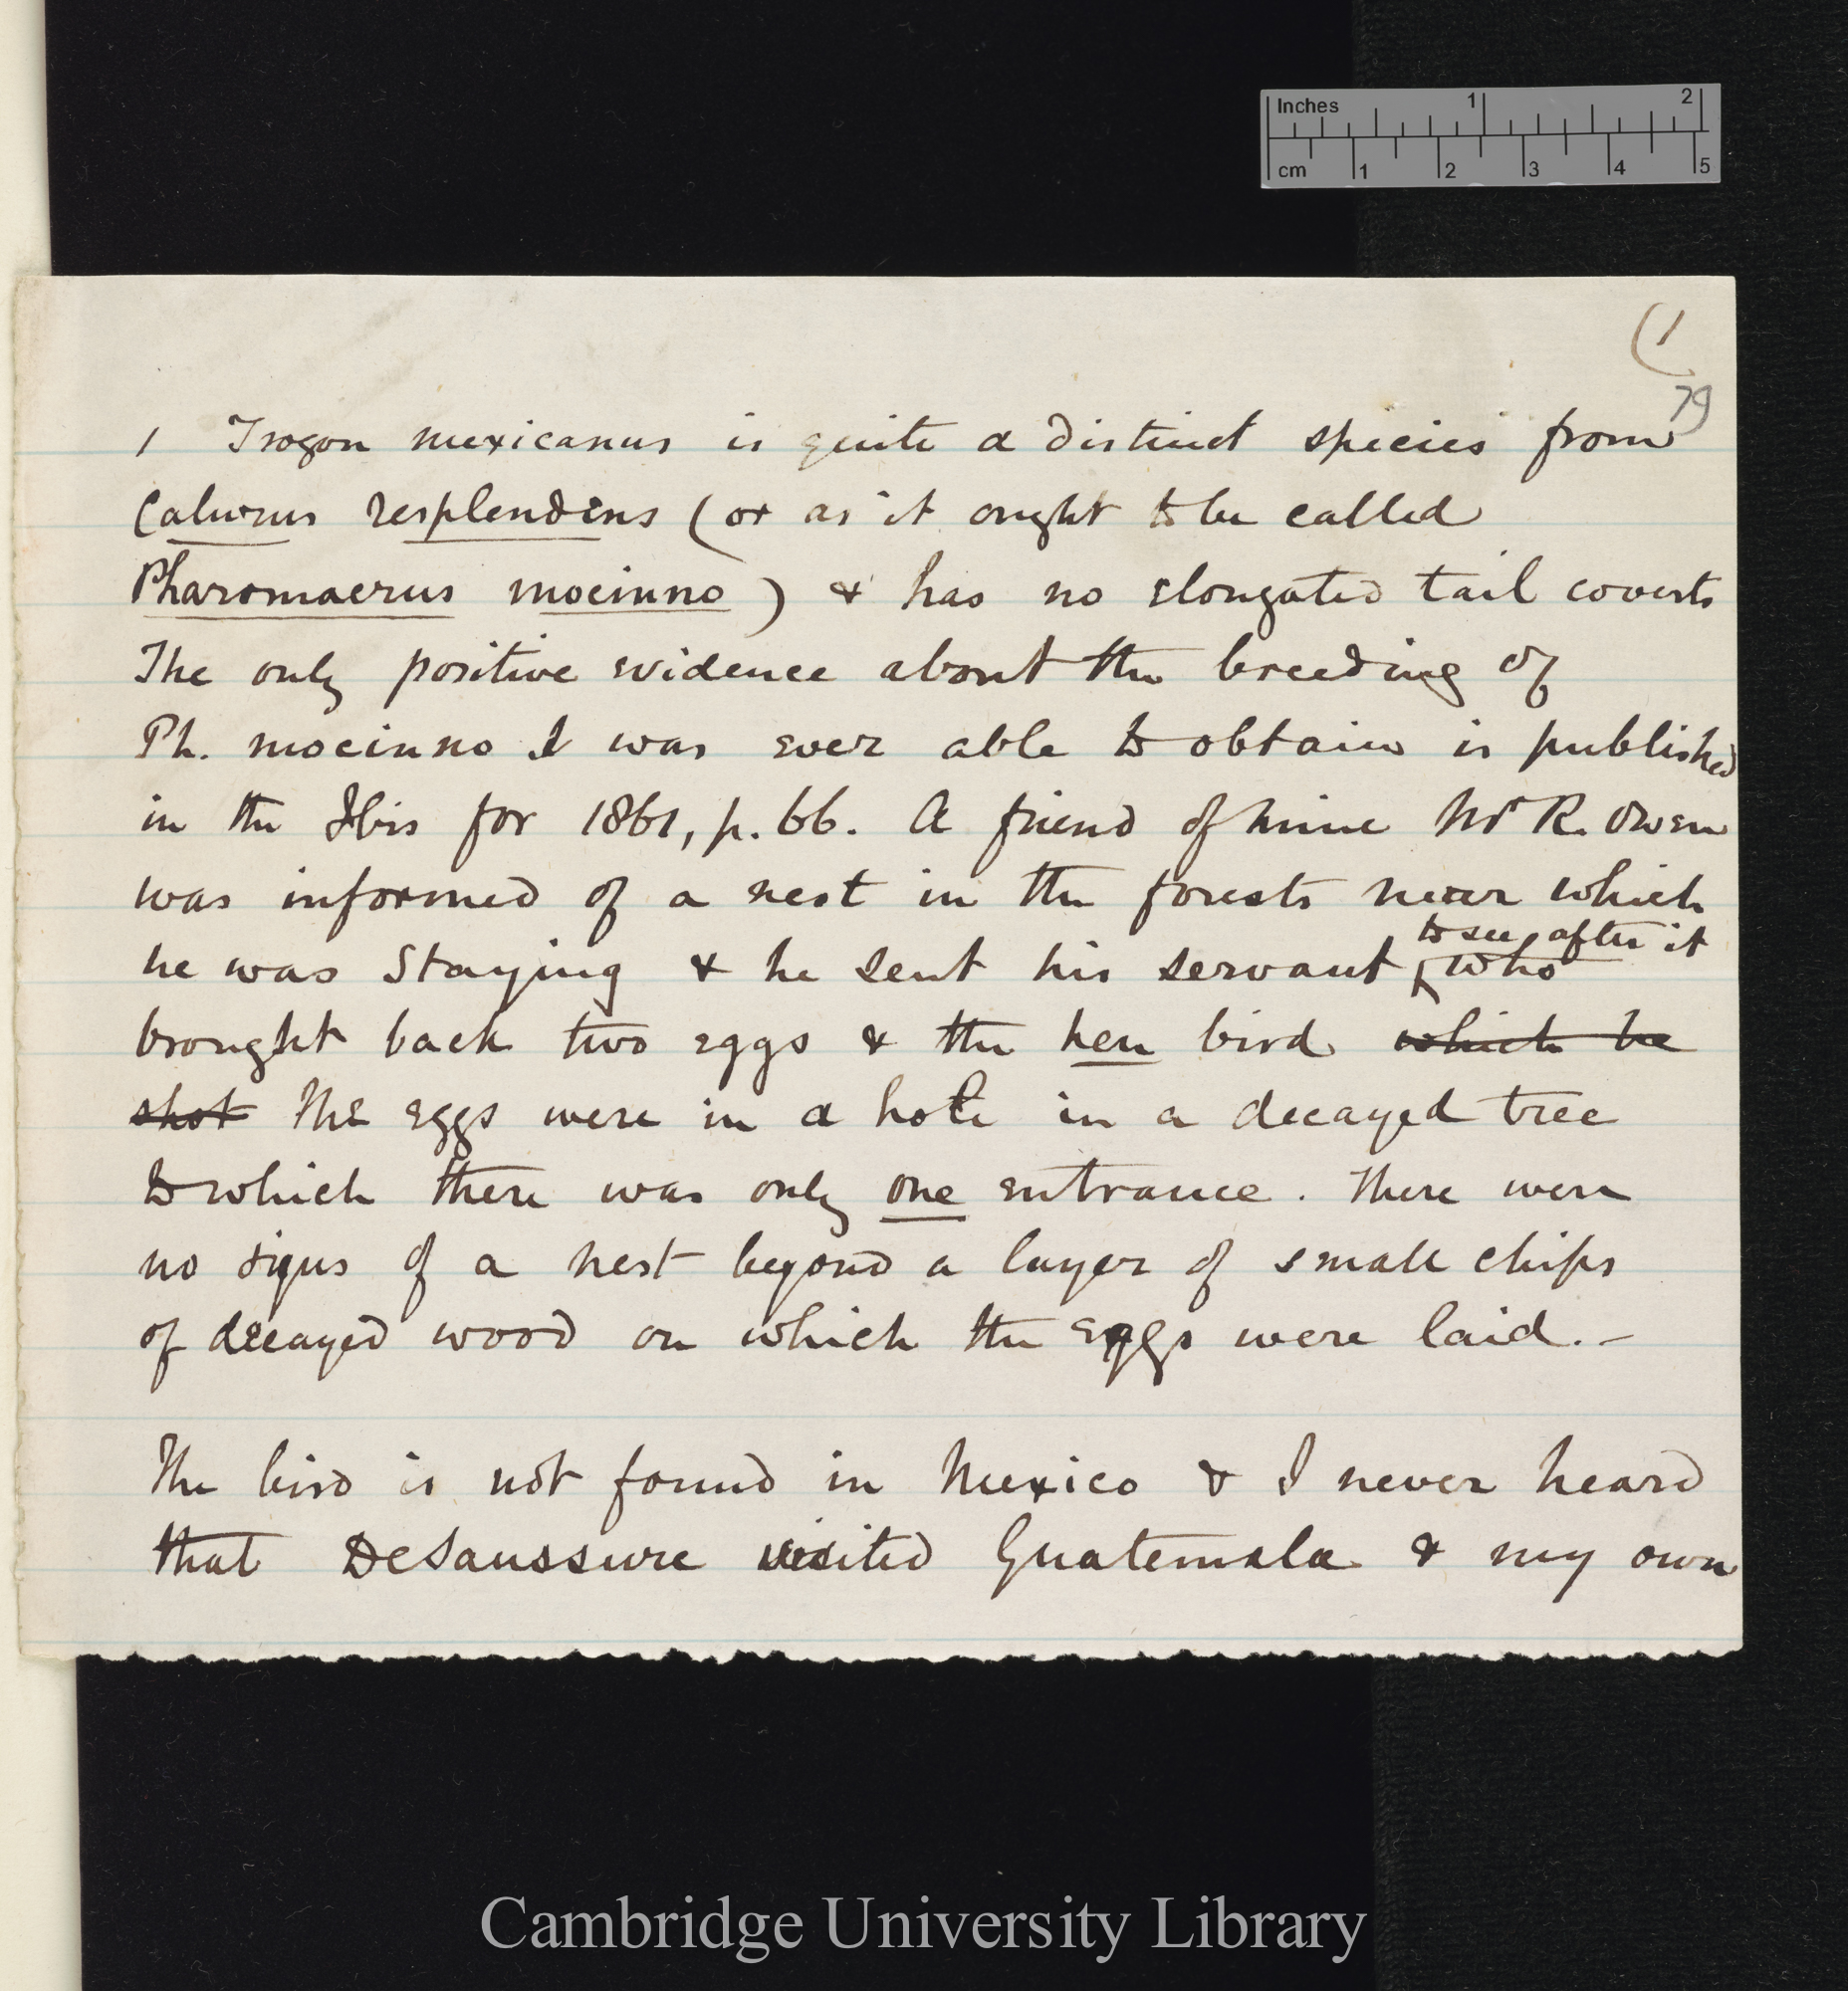 Inches 1 2
cm 1 2 3 4 5
(1
79
1 Trogon mexicanus is quite a distinct species from
Calurus resplendens (or as it ought to be called
Pharomacrus mocinno) & has no elongated tail coverts
The only positive evidence about the breeding of
Ph. mocinno I was ever able to obtain is published
in the Ibis for 1861, p. 66. A friend of mine Mr R. Owen
was informed of a nest in the forests near which
to see after it
he was staying & he sent his servant who
brought back two eggs & the hen bird which he
shot The eggs were in a hole in a decayed tree
to which there was only one entrance. There were
no signs of a nest beyond a layer of small chips
of decayed wood on which the eggs were laid.–
The bird is not found in Mexico & I never heard
that DeSaussure visited Guatemala & my own
Cambridge University Library